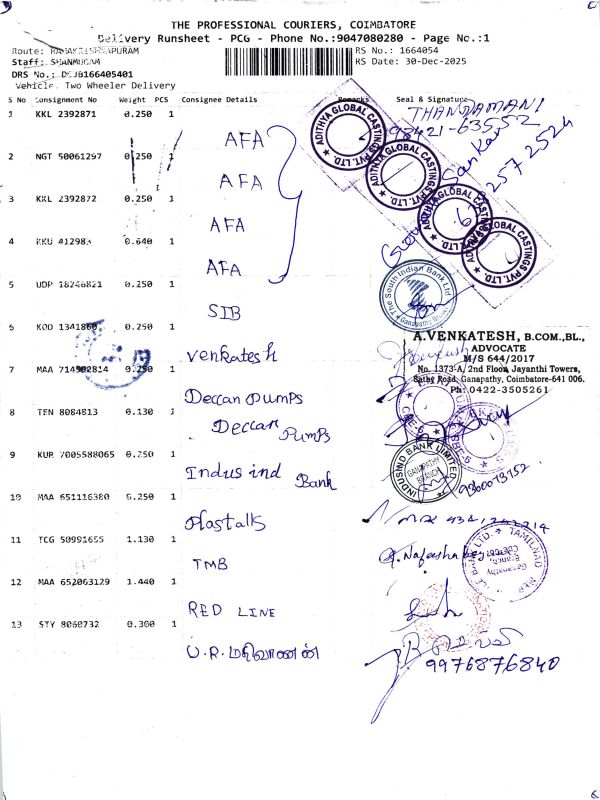 THE PROFESSIONAL COURIERS, COIMBATORE
Delivery Runsheet - PCG - Phone No.:9047080280 - Page No.:1
Route: RAMAKRISHNAPURAM
RS No.: 1664054
Staff: SHANMUGAM
RS Date: 30-Dec-2025
DRS No.: DCJB166405401
Vehicle. Two Wheeler Delivery
S No Consignment No Weight PCS Consignee Details Remarks Seal & Signature
1 KKL 2392871 0.250 1 AFA
THANDAMANI
98421-63552
2 NGT 50061297 0.250 1 AFA
3 KKL 2392872 0.250 1 AFA
4 KKU 412983 0.640 1 AFA
5 UDP 18246821 0.250 1 SIB
6 KOD 1341860 0.250 1 Venkatesh
7 MAA 714502814 0.250 1 Deccan Pumps
8 TEN 8084813 0.130 1 Deccan Pumps
9 KUR 7005588065 0.250 1 Indus ind Bank
10 MAA 651116380 0.250 1 Plastalls
11 TCG 50991655 1.130 1 TMB
12 MAA 652063129 1.440 1 RED LINE
13 STY 8068732 0.300 1 U.R.மதிவாணன்
ADITHYA GLOBAL CASTINGS PVT. LTD.
ADITHYA GLOBAL CASTINGS PVT. LTD.
ADITHYA GLOBAL CASTINGS PVT. LTD.
ADITHYA GLOBAL CASTINGS PVT. LTD.
Sankar
The South Indian Bank Ltd.
A.VENKATESH, B.COM.,BL.,
ADVOCATE
M/S 644/2017
No. 1373-A, 2nd Floor, Jayanthi Towers,
Sathy Road, Ganapathy, Coimbatore-641 006.
Ph: 0422-3505261
INDUSIND BANK LIMITED
GANAPATHY
BRANCH
TAMILNAD
Ganapathy
Branch,
9976876840